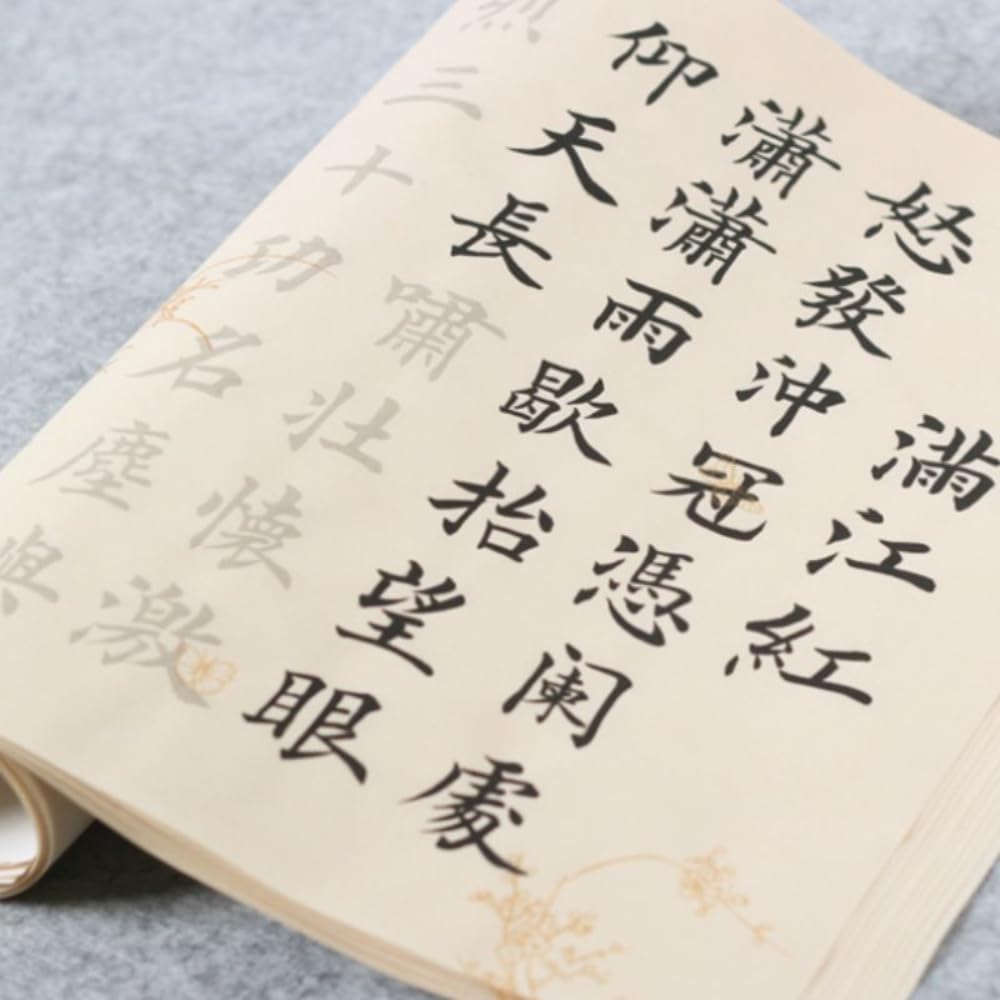 滿江紅
怒發沖冠憑阑處
瀟瀟雨歇抬望眼
仰天長嘯壯懷激
烈三十功名塵與